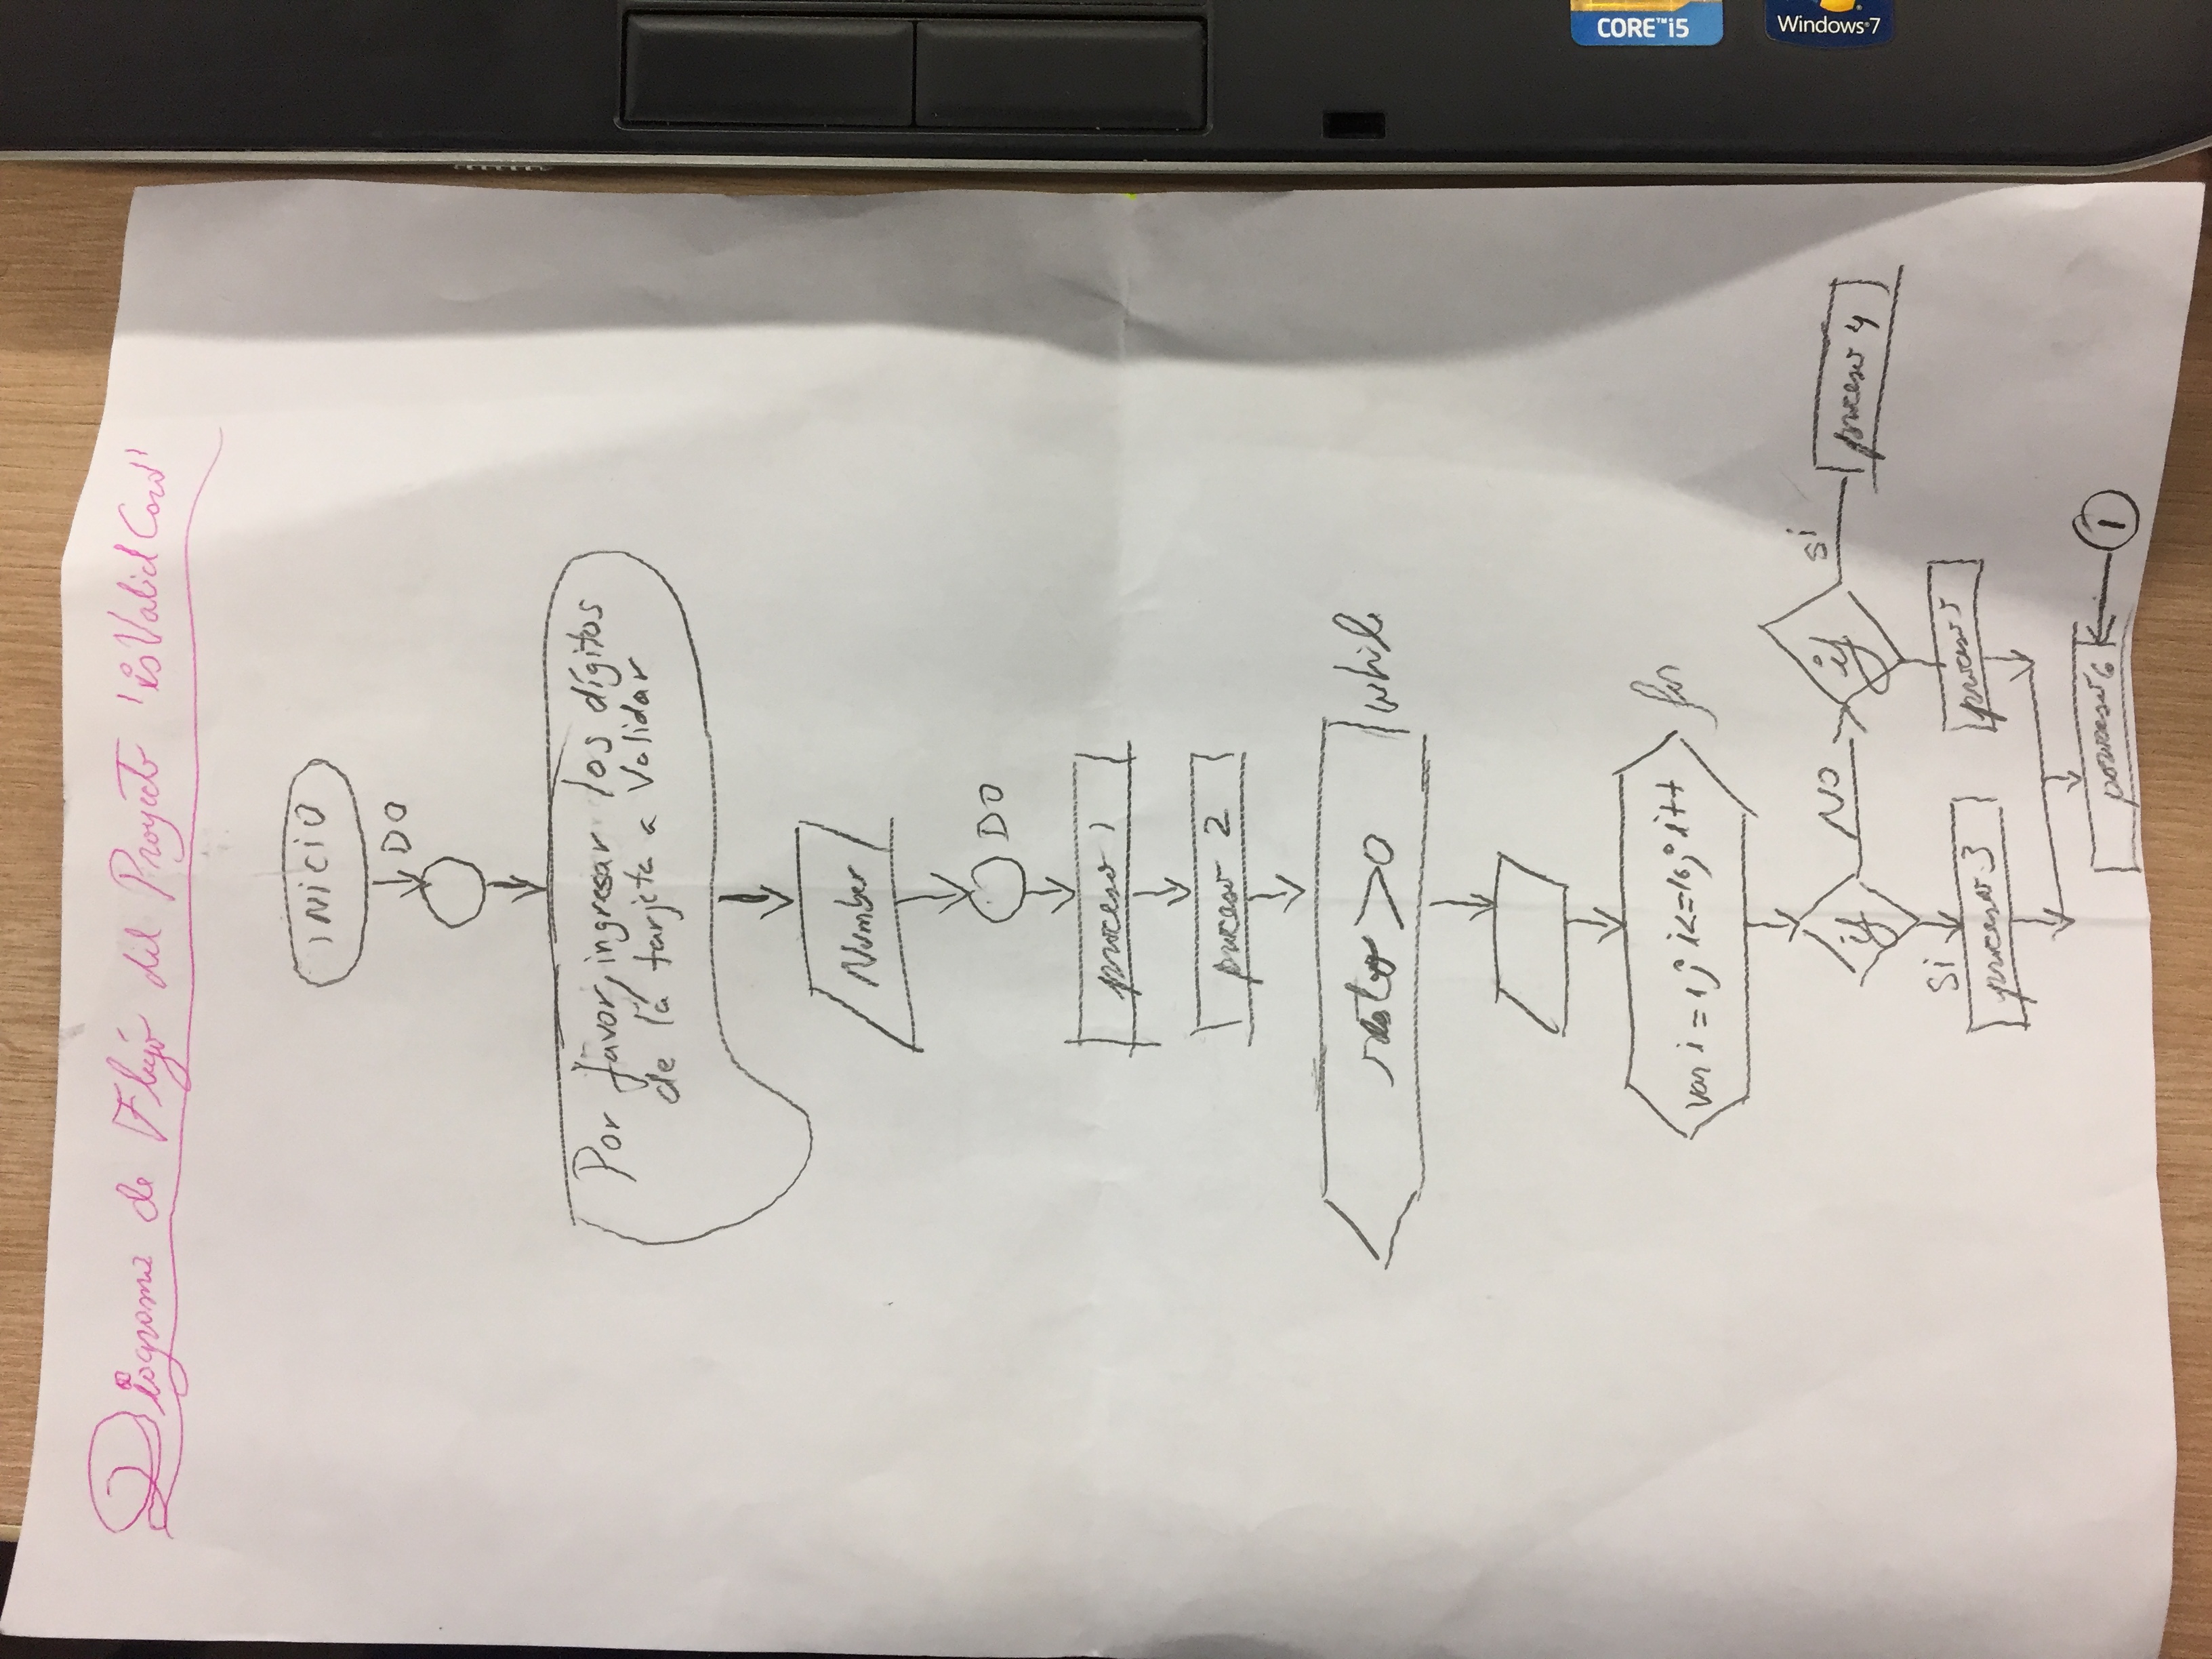 Diagrama de Flujo del Proyecto 'isValidCard'
INICIO
DO
Por favor, ingresar los dígitos
de la tarjeta a Validar
Number
DO
proceso 1
proceso 2
resto >0
while
var i = 1; i<=16; i++
for
if
NO
if
si
proceso 4
si
proceso 3
proceso 5
proceso 6
1
CORE™ i5
Windows 7